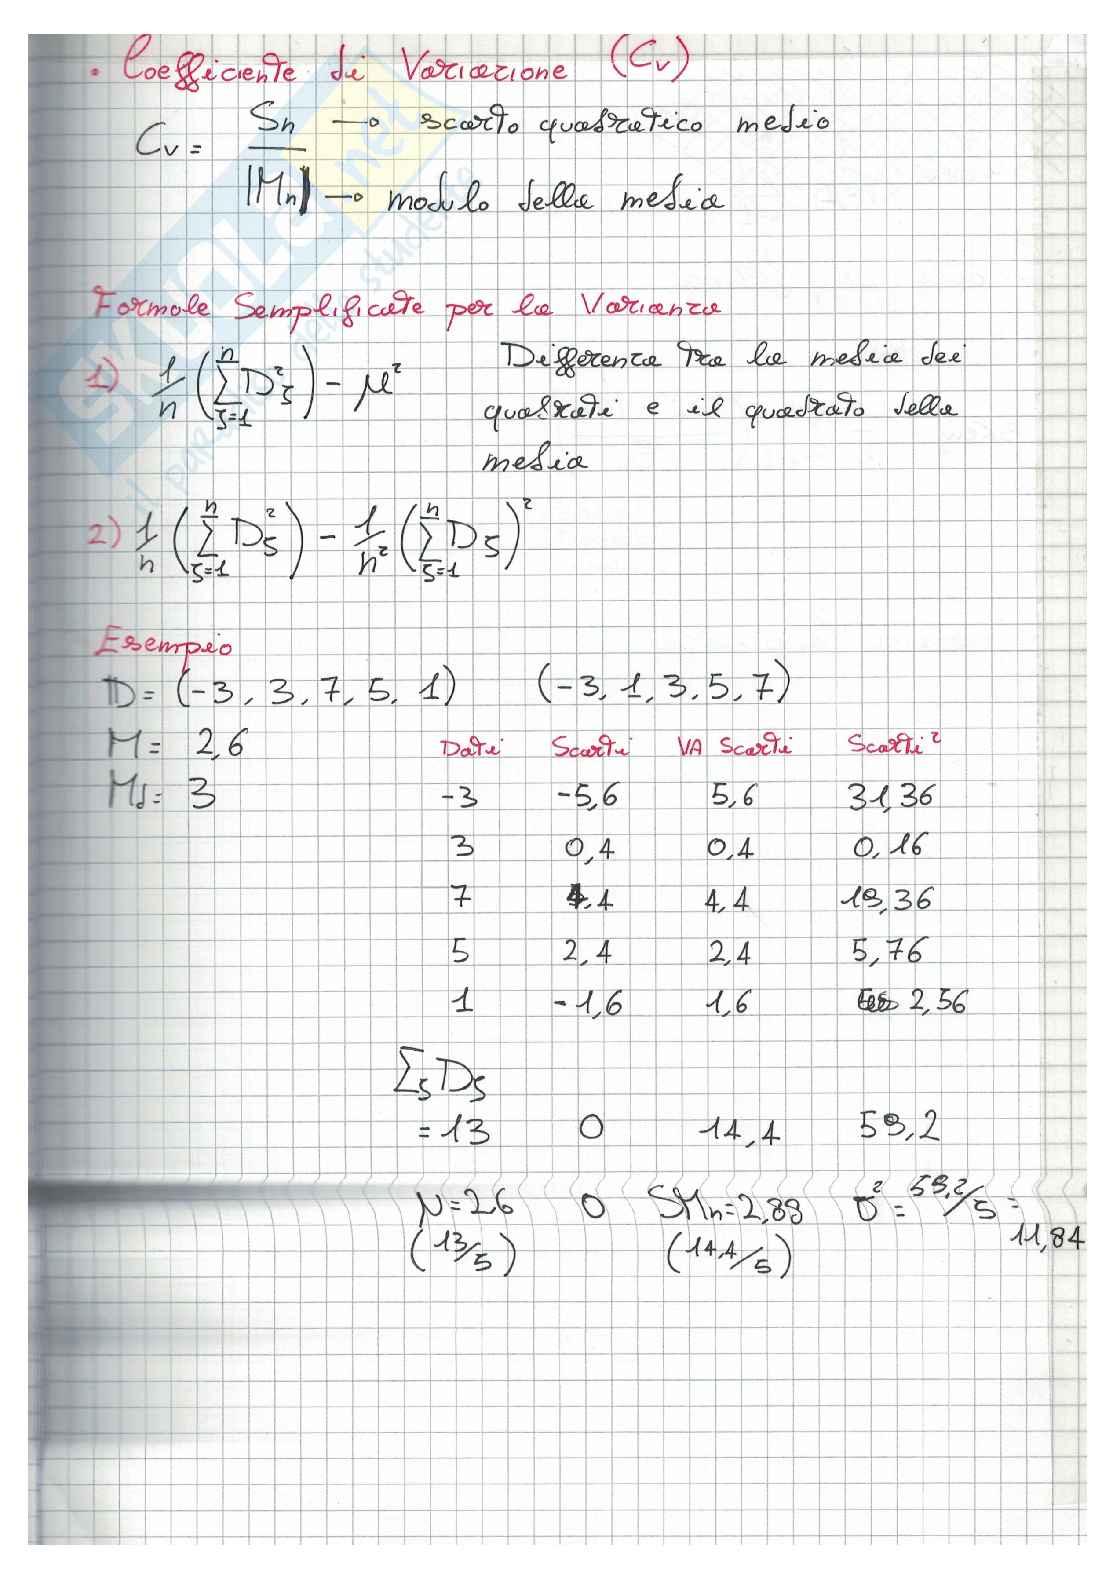 • Coefficiente di Variazione (Cv)
Cv = Sn / |Mn|
Sn → scarto quadratico medio
|Mn| → modulo della media
Formule Semplificate per la Varianza
1) 1/n (∑ⁿ_{j=1} D²_j) - μ²
Differenza tra la media dei
quadrati e il quadrato della
media
2) 1/n (∑ⁿ_{j=1} D²_j) - 1/n² (∑ⁿ_{j=1} D_j)²
Esempio
D = (-3, 3, 7, 5, 1) (-3, 1, 3, 5, 7)
M = 2,6
Md = 3
Dati Scarti VA Scarti Scarti²
-3 -5,6 5,6 31,36
3 0,4 0,4 0,16
7 4,4 4,4 19,36
5 2,4 2,4 5,76
1 -1,6 1,6 2,56
∑_j D_j
= 13 0 14,4 59,2
μ = 2,6 0 SMn = 2,88 σ² = 59,2/5 =
11,84
(13/5) (14,4/5)
SKUOLA.net